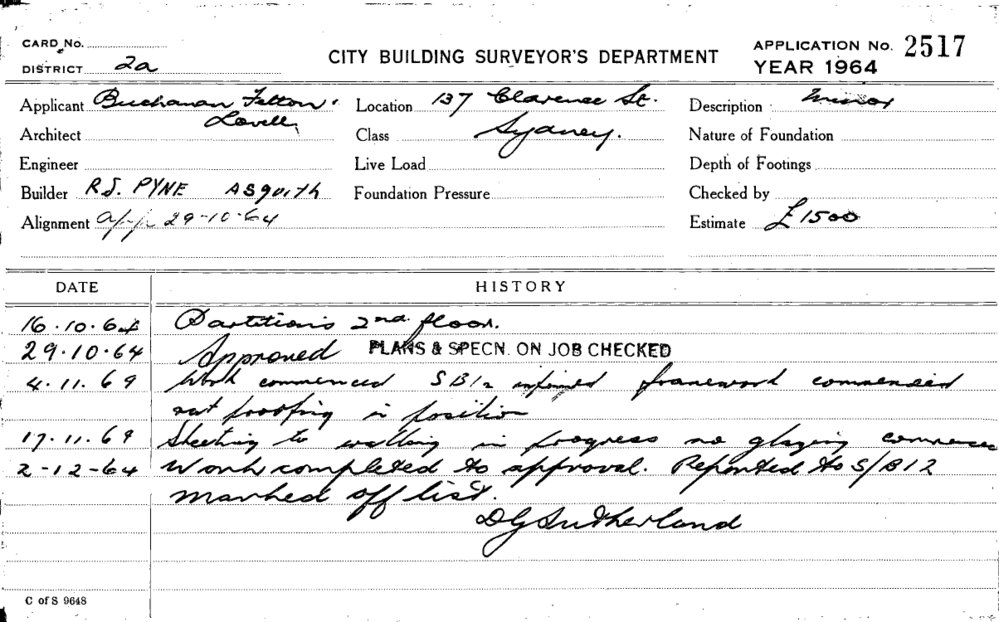 CARD No.
DISTRICT 2a
CITY BUILDING SURVEYOR'S DEPARTMENT
APPLICATION No. 2517
YEAR 1964
Applicant Buchanan Felton &
Lovell,
Location 137 Clarence St.
Description Minor
Architect
Class Sydney.
Nature of Foundation
Engineer
Live Load
Depth of Footings
Builder R.J. PYNE ASquith
Foundation Pressure
Checked by
Alignment app 29-10-64
Estimate £1500
DATE HISTORY
16.10.64 Partitions 2nd floor.
29.10.64 Approved PLANS & SPECN. ON JOB CHECKED
4.11.64 Work commenced SB12 informed framework commenced
rat proofing in position
17.11.64 Sheeting to walling in progress no glazing commenced
2-12-64 Work completed to approval. Reported to S/B12
marked off list.
DGSutherland
C of S 9648